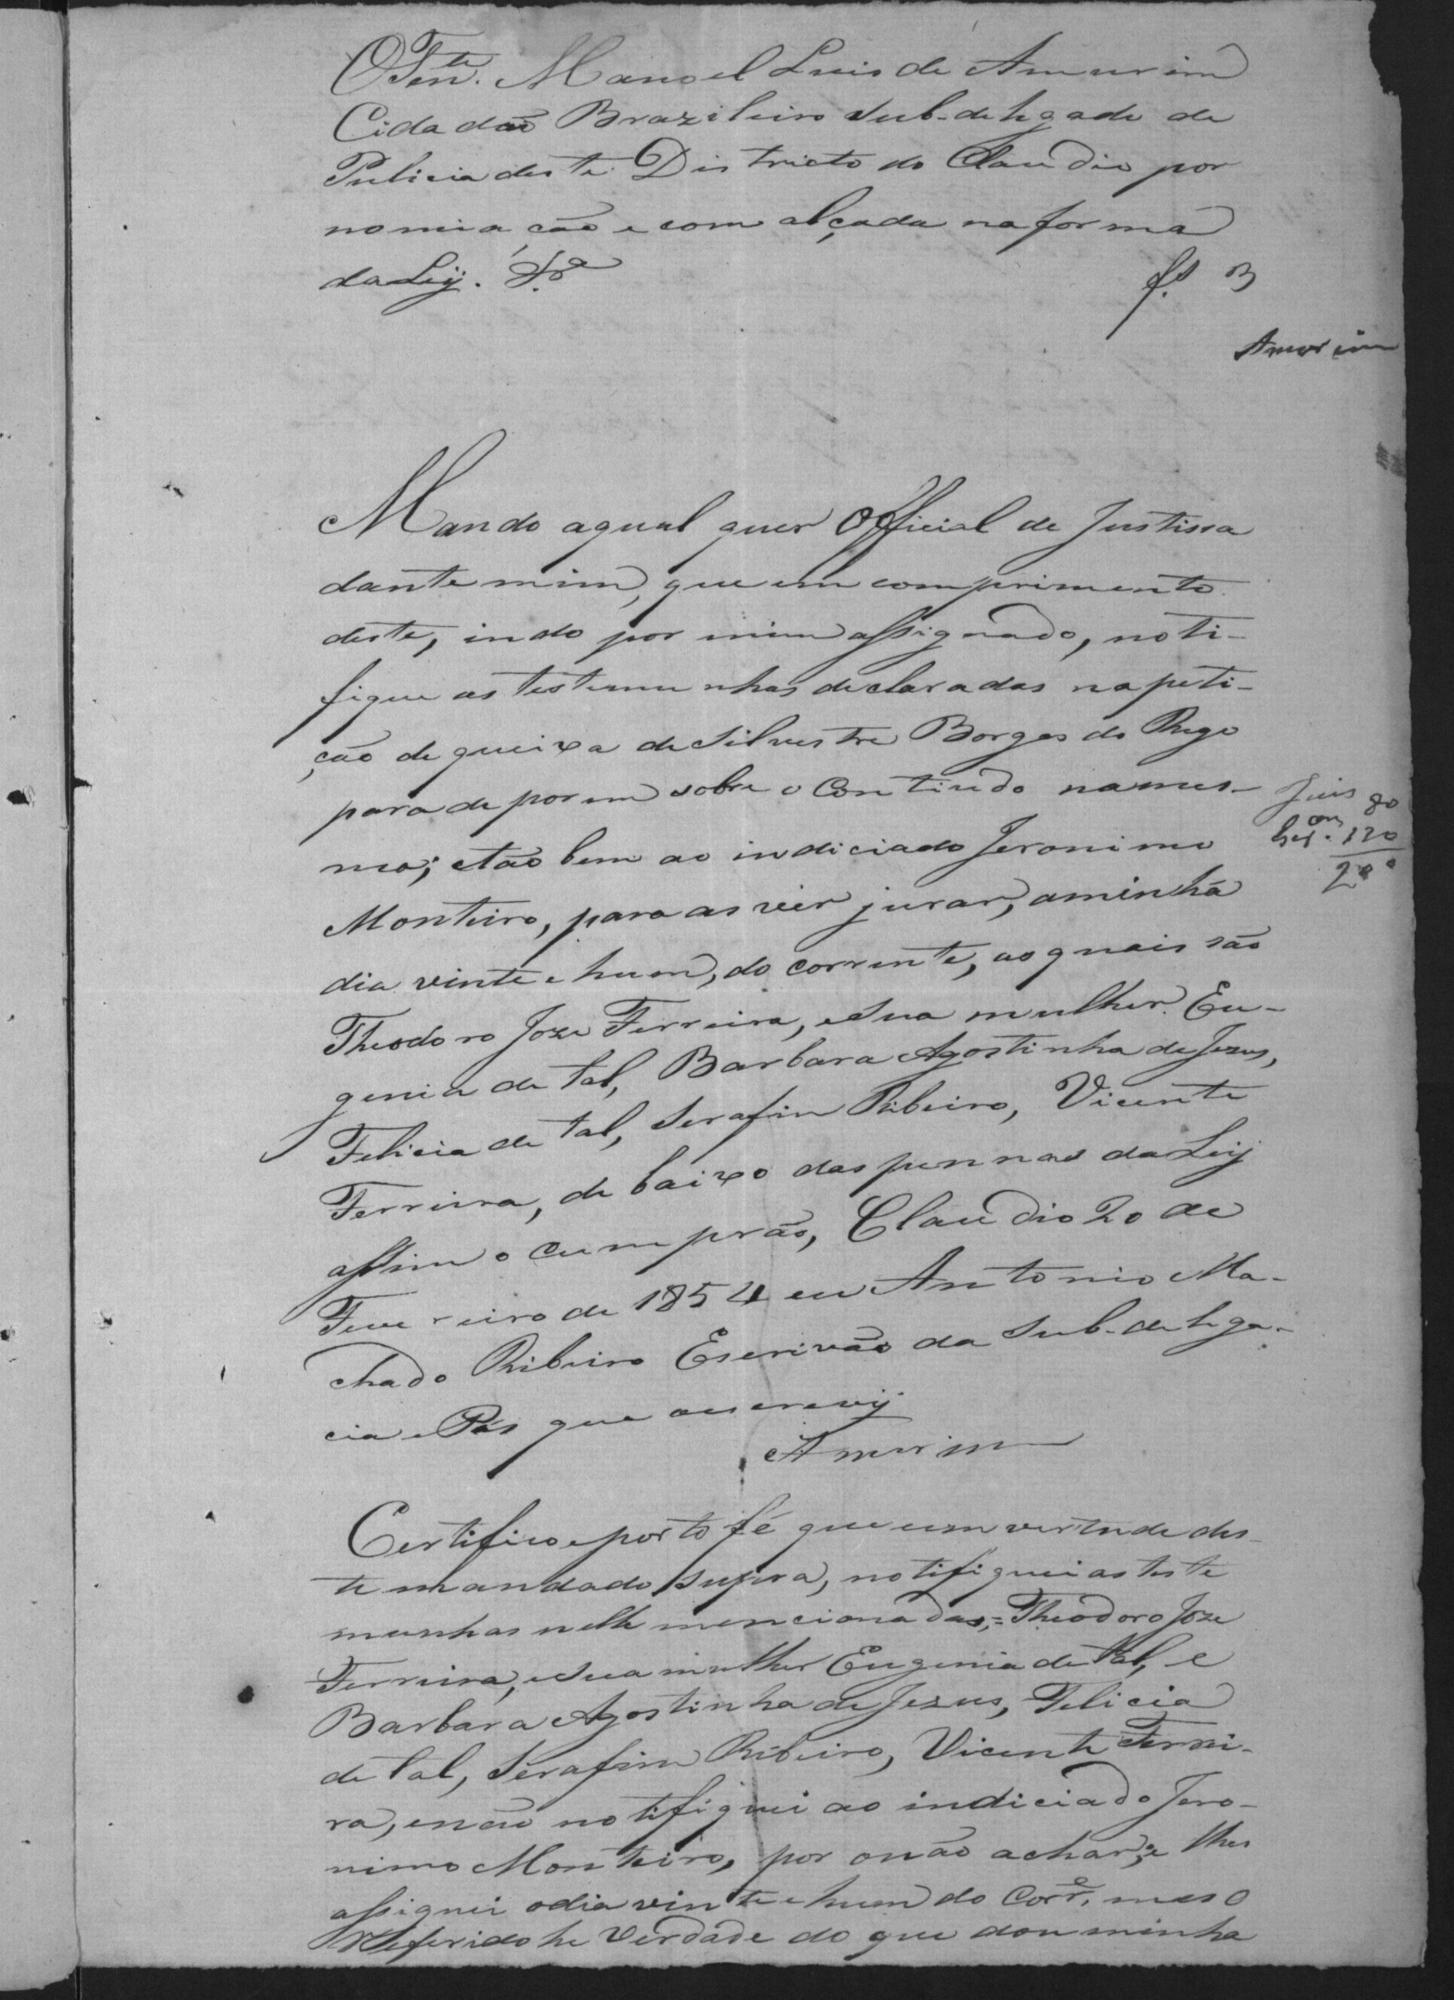 O Tenᵗᵉ. Manoel Luis de Amurim
Cidadão Brazileiro Sub-delegado de
Pulicia deste Districto do Claudio por
nomiação e com alçada na forma
da Ley. &ª
fˢ. 3
Amorim
Mando aqual quer Official de Justissa
dante mim, que em comprimento
deste, indo por mim assignado, noti-
fique as testemunhas declaradas na peti-
ção de queixa de Silvestre Borges do Rego
para deporem sobre o Contiudo names-
ma; etão bem ao indiciado Jeronimo
Juis 80
120
200
Monteiro, para as ver jurar, aminhã
dia vinte e hum, do corrente, as quais são
Theodoro Joze Ferreira, e Sua mulher Eu-
genia de tal, Barbara Agostinha de Jezus,
Felicia de tal, Serafim Ribeiro, Vicente
Ferreira, de baixo das pennas da Ley
assim o cumprão, Claudio 20 de
Fevereiro de 1854 eu Antonio Ma-
chado Ribeiro Escrivão da Sub-delega-
cia e Pás que o escrevy
Amurim
Certifico e porto fé que em vertude des-
te mandado supra, notifiquei as teste
munhas nelle mencionadas, = Theodoro Joze
Ferreira, e Sua mulher Eugenia de tal, e
Barbara Agostinha de Jezus, Felicia
de tal, Serafim Ribeiro, Vicente Ferrei-
ra, e não notifiquei ao indiciado Jero-
nimo Monteiro, por o não achar, e lhes
assignei o dia vinte e hum do Corrᵉ. mes o
Referido he Verdade do que dou minha